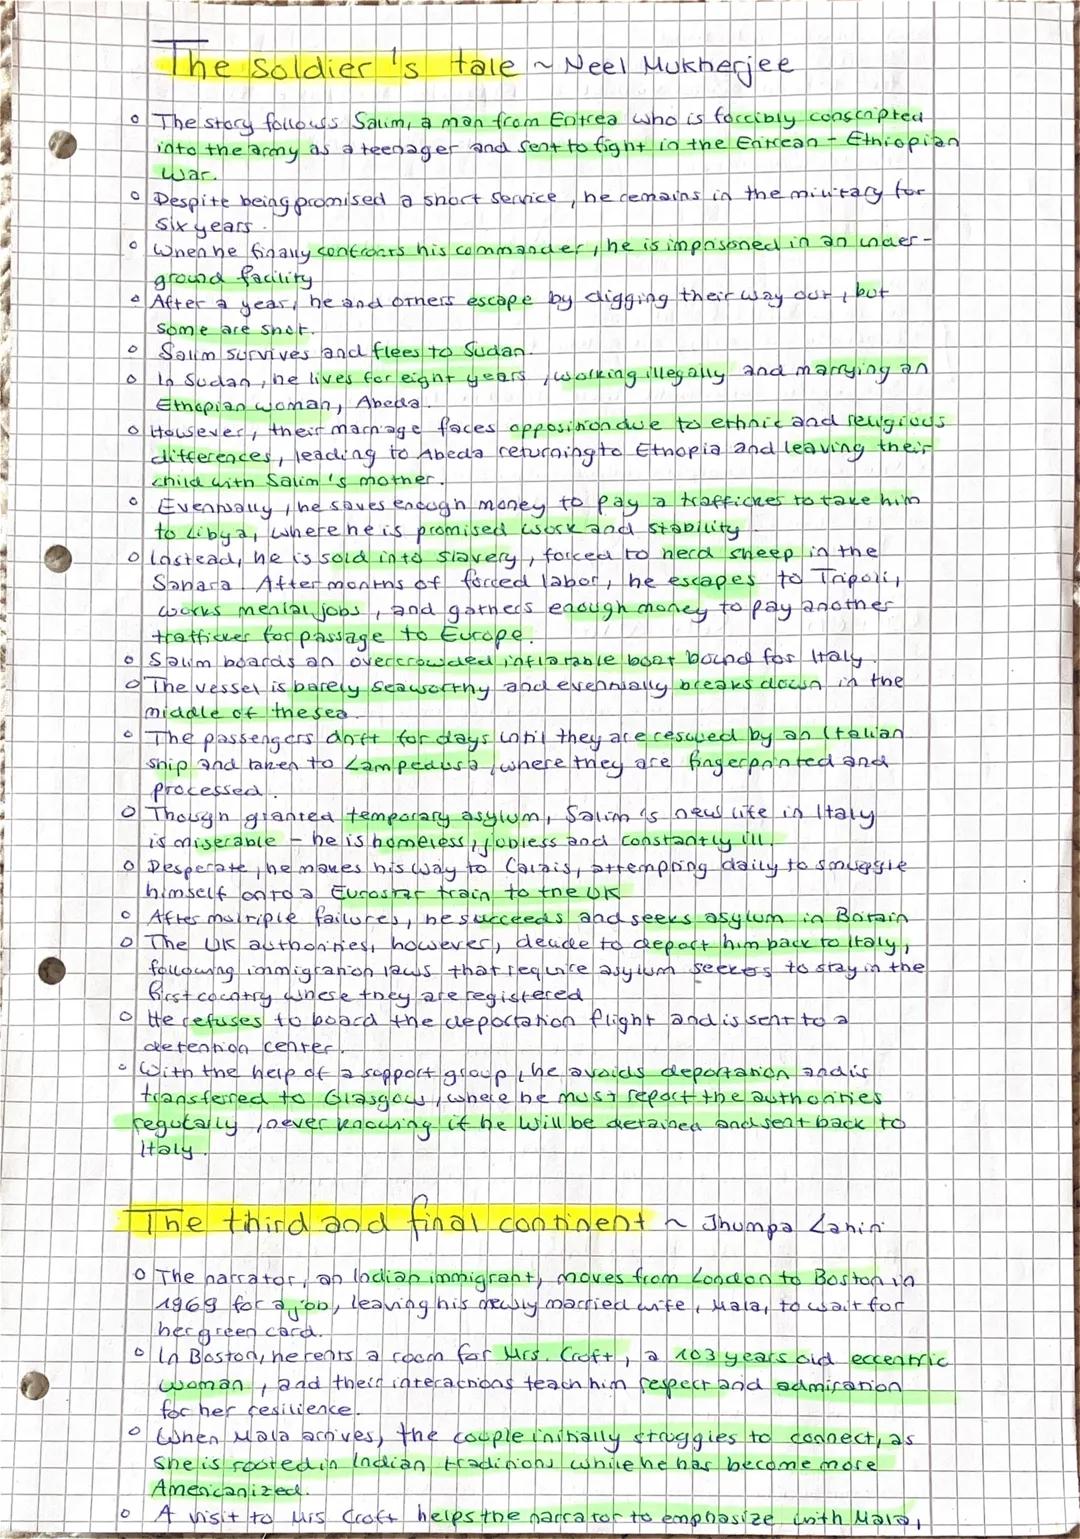 The soldier's tale ~ Neel Mukherjee
o The story follows Salim, a man from Eritrea who is forcibly conscripted
into the army as a teenager and sent to fight in the Eritrean - Ethiopian
War.
o Despite being promised a short service, he remains in the military for
six years.
o When he finally confronts his commander, he is imprisoned in an under-
ground facility
o After a year, he and others escape by digging their way out, but
some are shot.
o Salim survives and flees to Sudan.
o In Sudan, he lives for eight years, working illegally and marrying an
Ethopian woman, Abeda.
o However, their marriage faces opposition due to ethnic and religious
differences, leading to Abeda returning to Ethopia and leaving their
child with Salim's mother.
o Eventually, he saves enough money to pay a trafficker to take him
to Libya, where he is promised work and stability.
o Instead, he is sold into slavery, forced to herd sheep in the
Sahara. After months of forced labor, he escapes to Tripoli,
works menial jobs, and gathers enough money to pay another
trafficker for passage to Europe.
o Salim boards an overcrowded inflatable boat bound for Italy.
o The vessel is barely seaworthy and eventually breaks down in the
middle of the sea.
o The passengers drift for days until they are rescued by an Italian
ship and taken to Lampedusa, where they are fingerprinted and
processed.
o Though granted temporary asylum, Salim's new life in Italy
is miserable - he is homeless, jobless and constantly ill.
o Desperate, he makes his way to Calais, attempting daily to smuggle
himself onto a Eurostar train to the UK
o After multiple failures, he succeeds and seeks asylum in Britain
o The UK authorities, however, decide to deport him back to Italy,
following immigration laws that require asylum seekers to stay in the
first country where they are registered
o He refuses to board the deportation flight and is sent to a
detention center.
o With the help of a support group, he avoids deportation and is
transferred to Glasgow, where he must report the authorities
regularly, never knowing if he will be detained and sent back to
Italy.
The third and final continent ~ Jhumpa Lahiri
o The narrator, an Indian immigrant, moves from London to Boston in
1969 for a job, leaving his newly married wife, Mala, to wait for
her green card.
o In Boston, he rents a room for Mrs. Croft, a 103 years old eccentric
woman, and their interactions teach him respect and admiration
for her resilience.
o When Mala arrives, the couple initially struggles to connect, as
she is rooted in Indian traditions while he has become more
Americanized.
o A visit to Mrs Croft helps the narrator to emphasize with Mala,